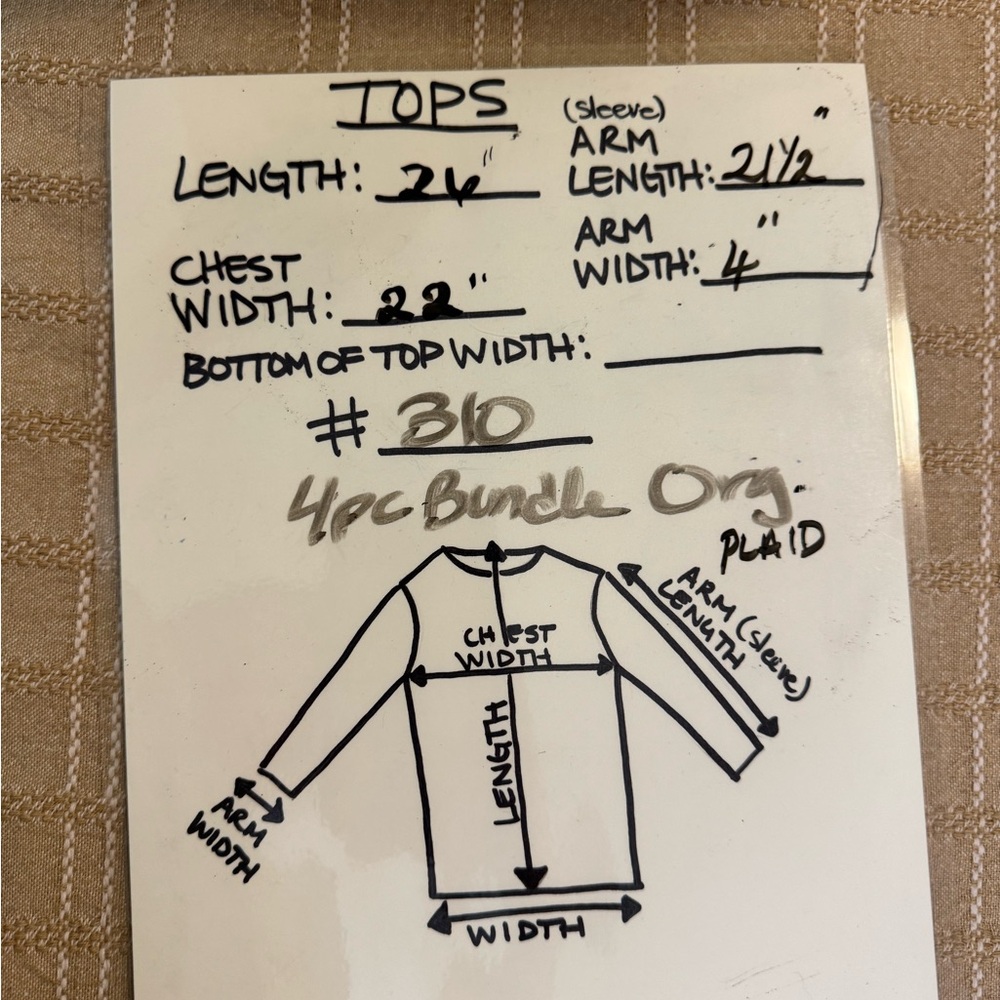 TOPS
LENGTH: 26"
(Sleeve)
ARM
LENGTH: 21 1/2"
CHEST
WIDTH: 22"
ARM
WIDTH: 4"
BOTTOM OF TOP WIDTH:
# 310
4pc Bundle Org.
PLAID
ARM (Sleeve)
LENGTH
CHEST
WIDTH
LENGTH
ARM
WIDTH
WIDTH